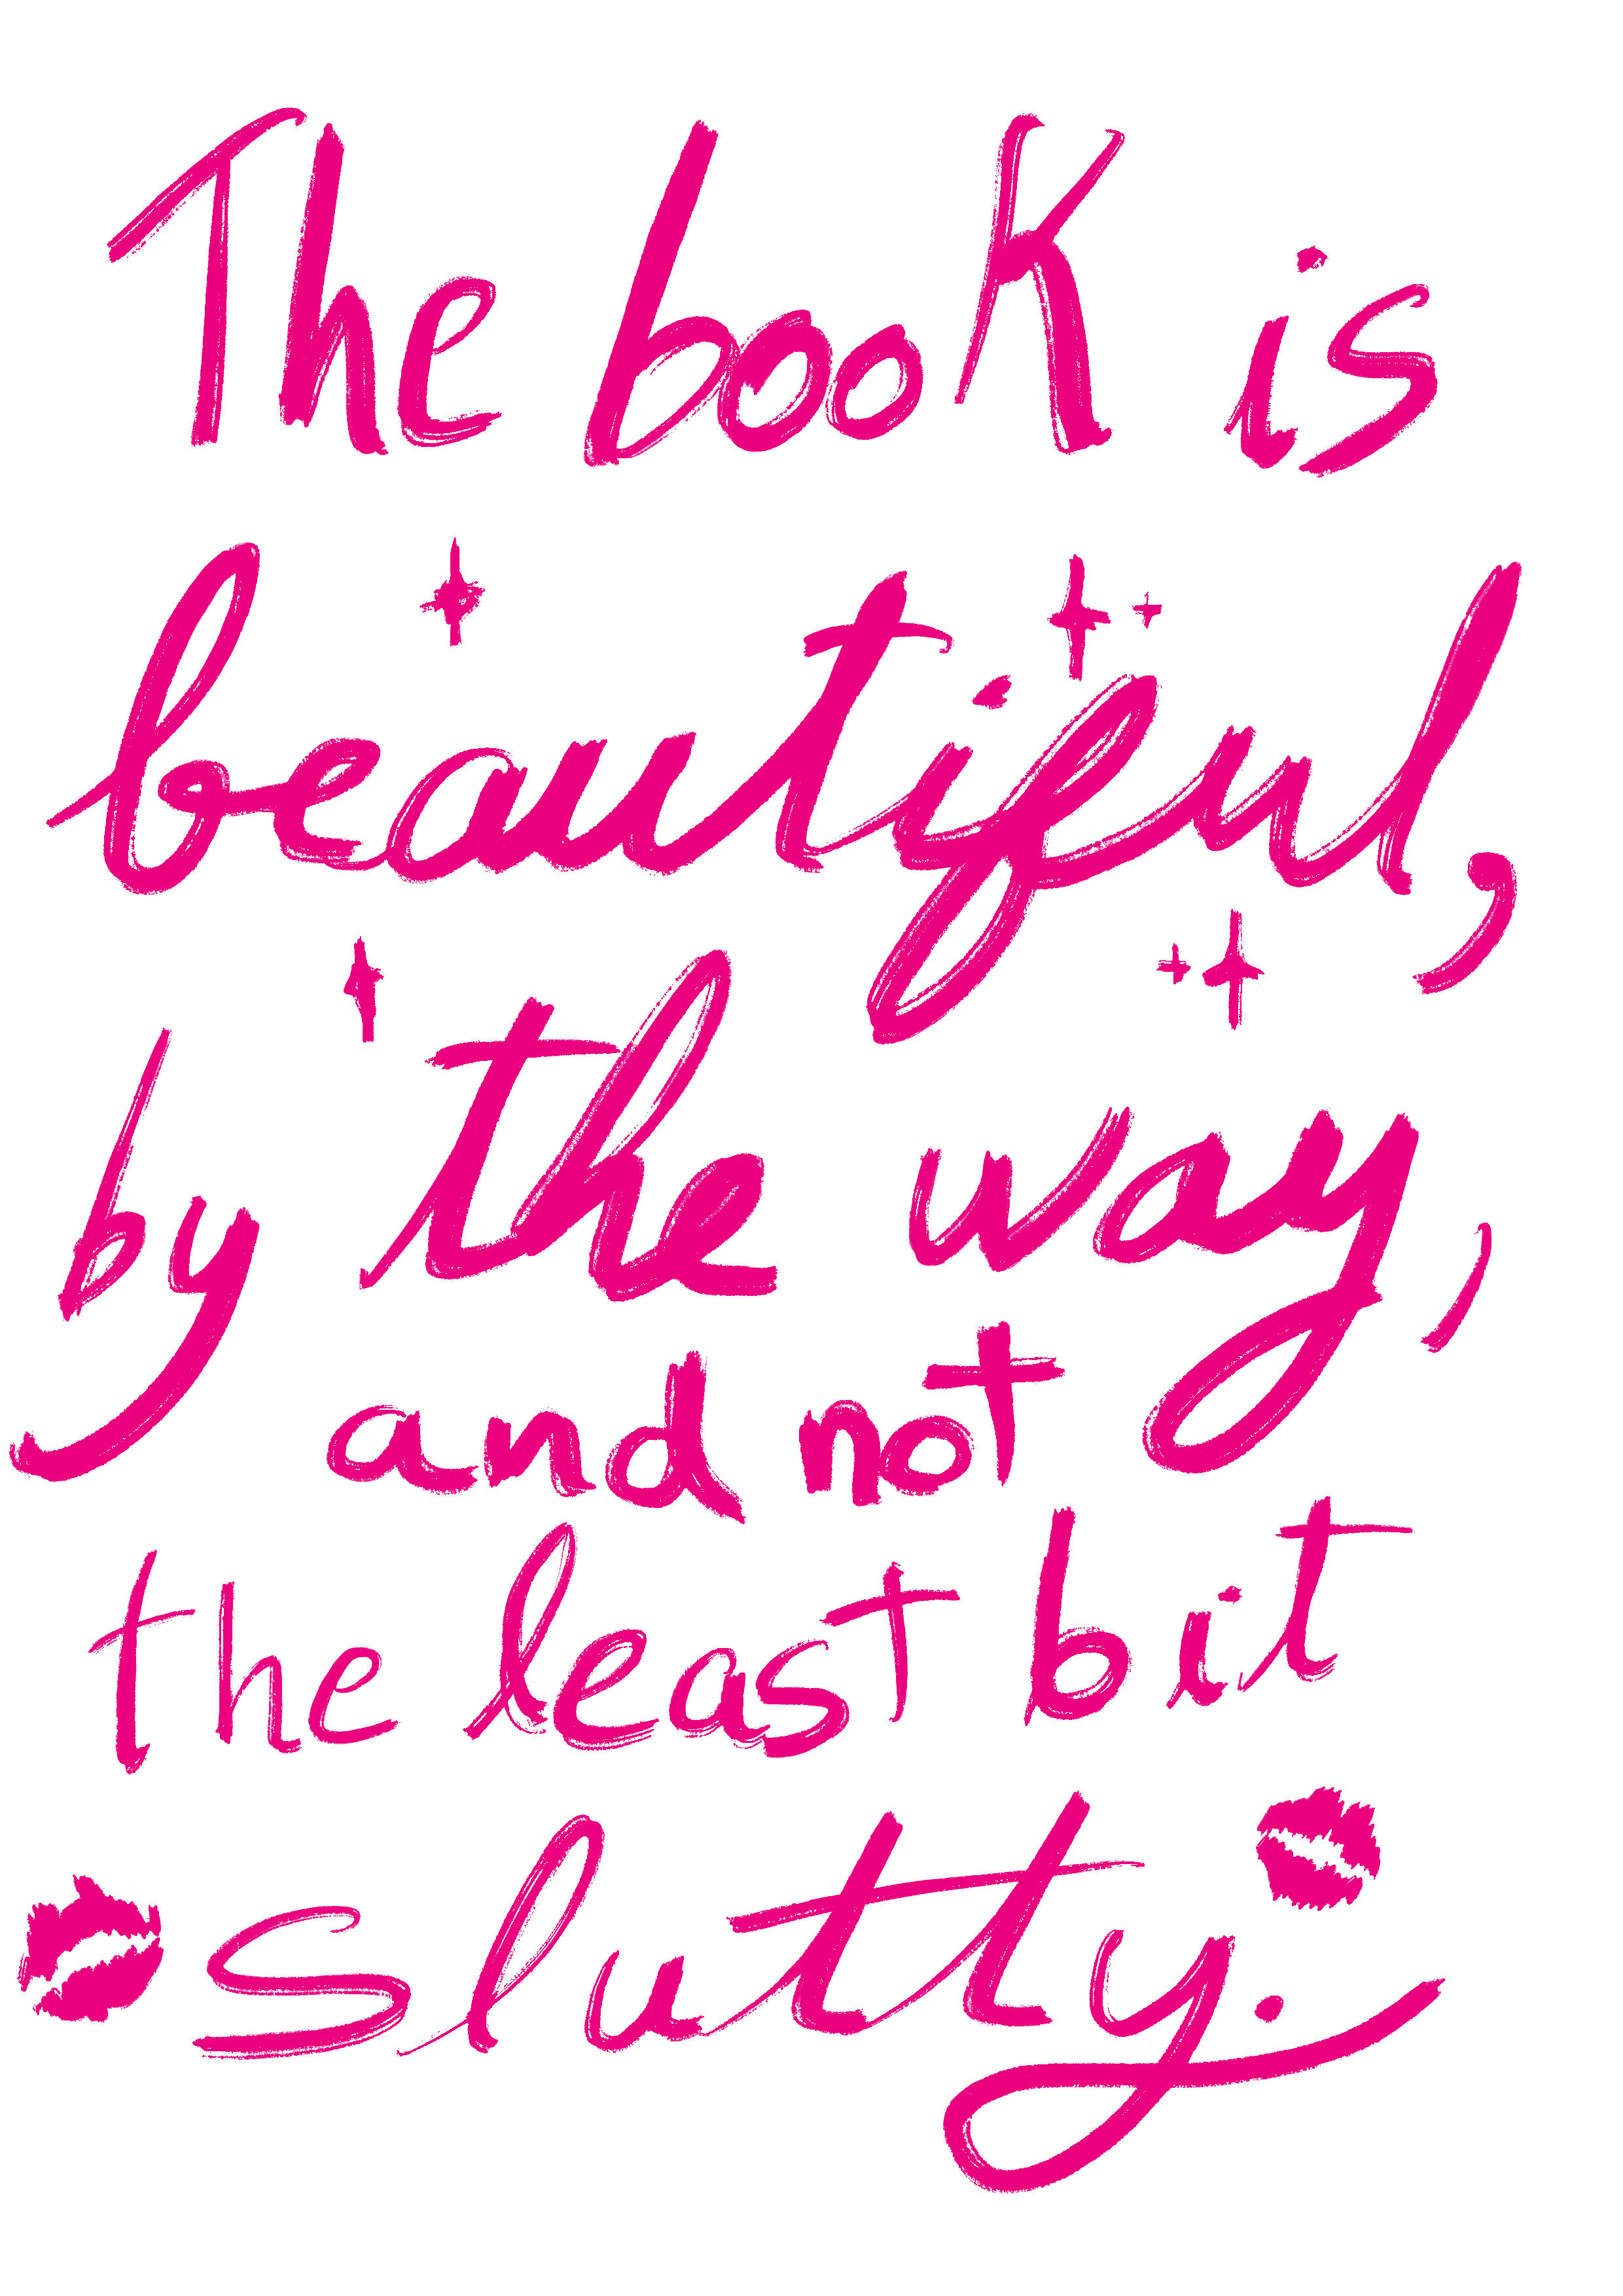 The book is
beautiful,
by the way,
and not
the least bit
slutty.